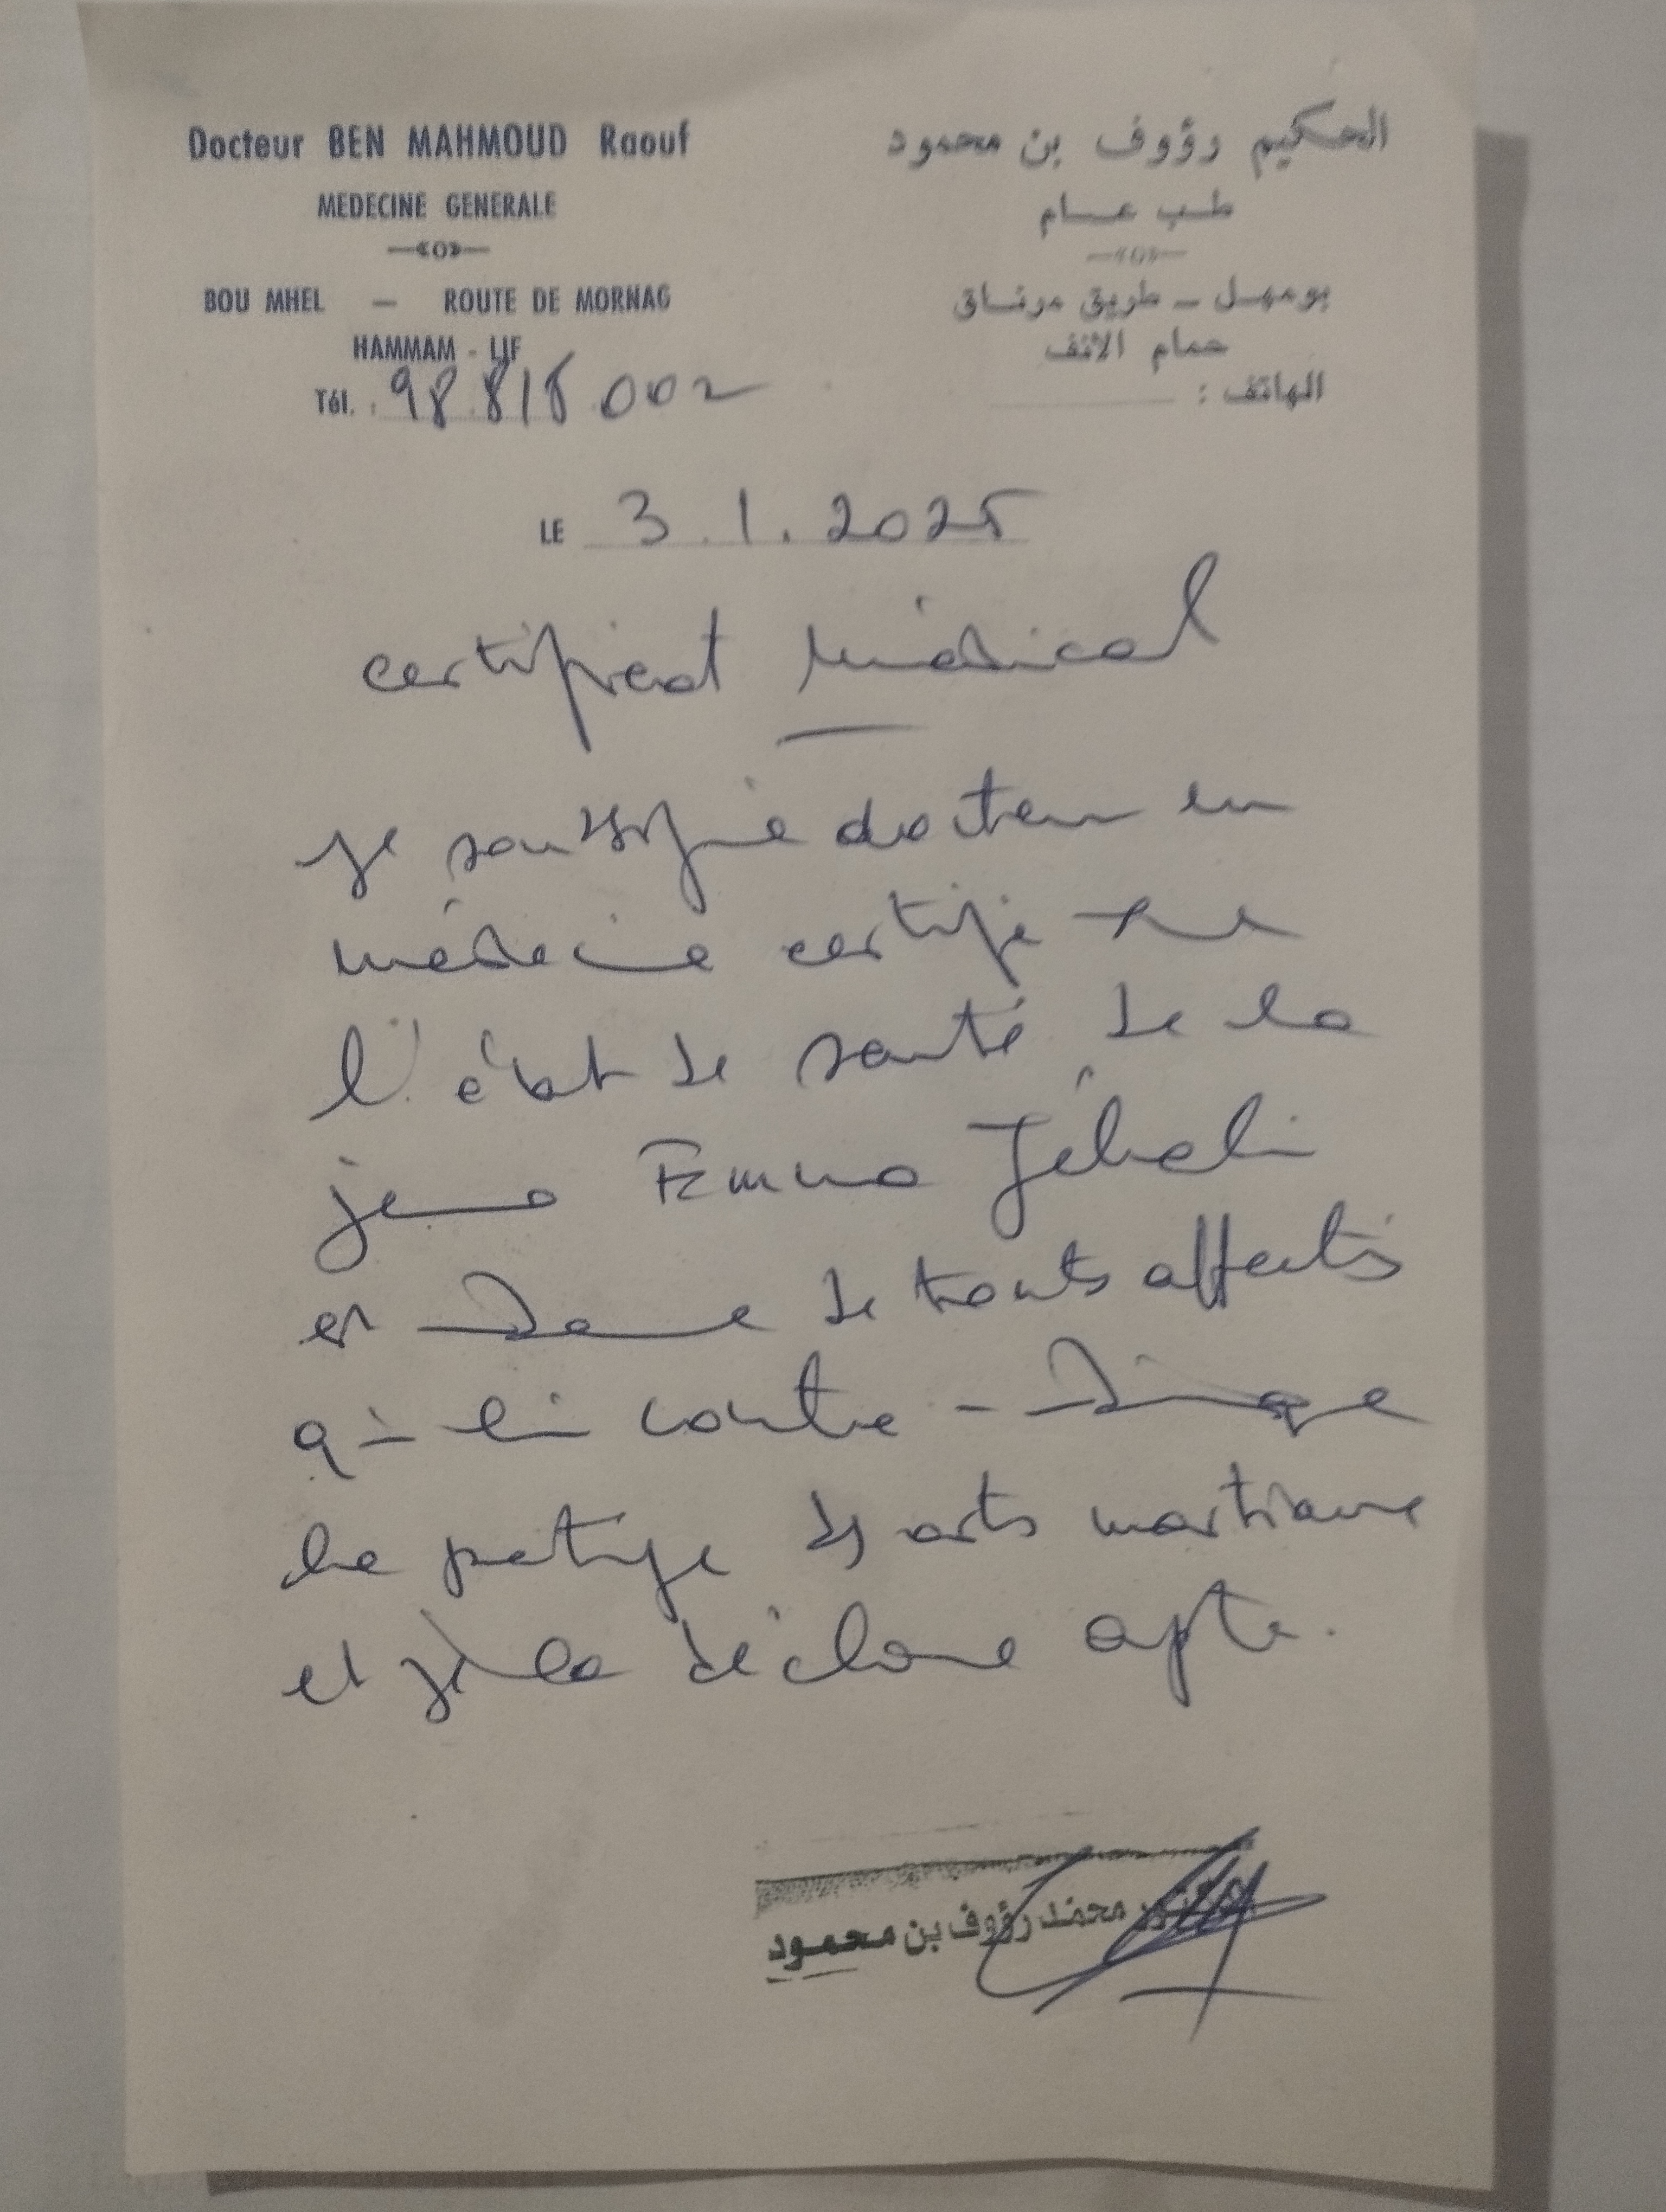 Docteur BEN MAHMOUD Raouf
MEDECINE GENERALE
BOU MHEL — ROUTE DE MORNAG
HAMMAM - LIF
Tél. : 98 818 002
الحكيم رؤوف بن محمود
طب عام
بومهل ـ طريق مرناق
حمام الانف
الهاتف :
LE 3.1.2025
certificat médical
Je soussigné docteur en
médecine certifie que
l'état de santé de la
jeune Emna Jebali
est
de touts affectis
qui lui contre-indique
la pratique des arts martiaux
et je la déclare apte.
الدكتور محمد رؤوف بن محمود